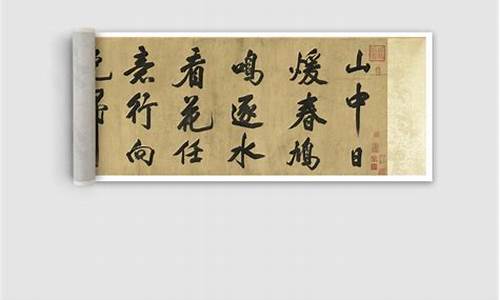 山中日
煖春鳩
鳴逐水
看花任
意行向